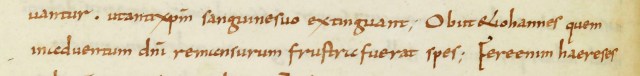 uantur . ut antixp̄m sanguine suo extinguant; Obiit & iohannes quem
in aduentum dn̄i remansurum frustra fuerat spes; Fere enim haereses